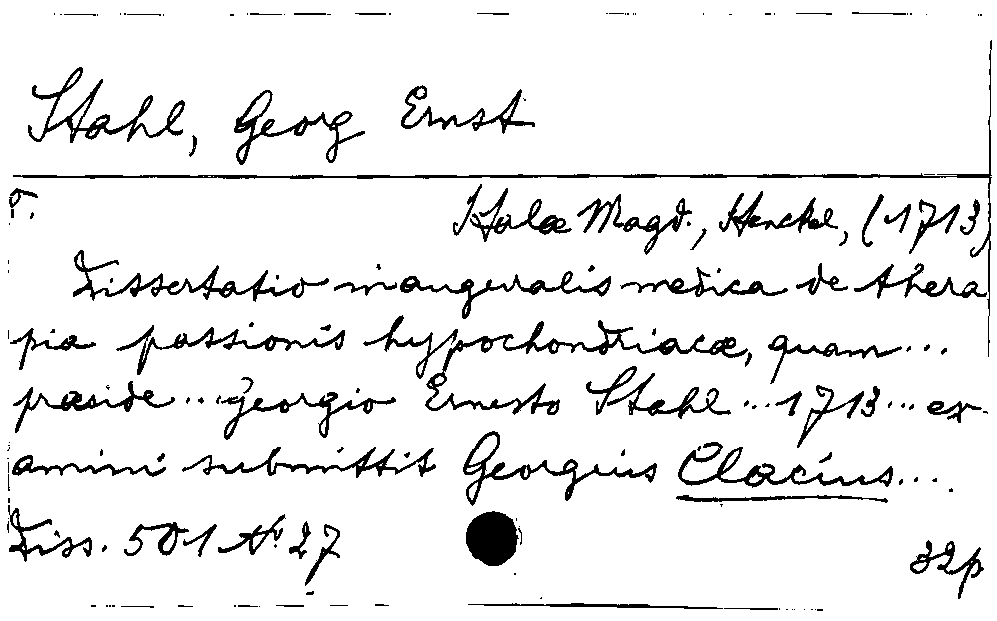 Stahl, Georg Ernst
Halæ Magd., Henckel, (1713)
Dissertatio inauguralis medica de thera
pia passionis hypochondriacæ, quam...
præside... Georgio Ernesto Stahl...1713... ex-
amini submittit Georgius Clacius....
Diss. 501 N° 27
32p